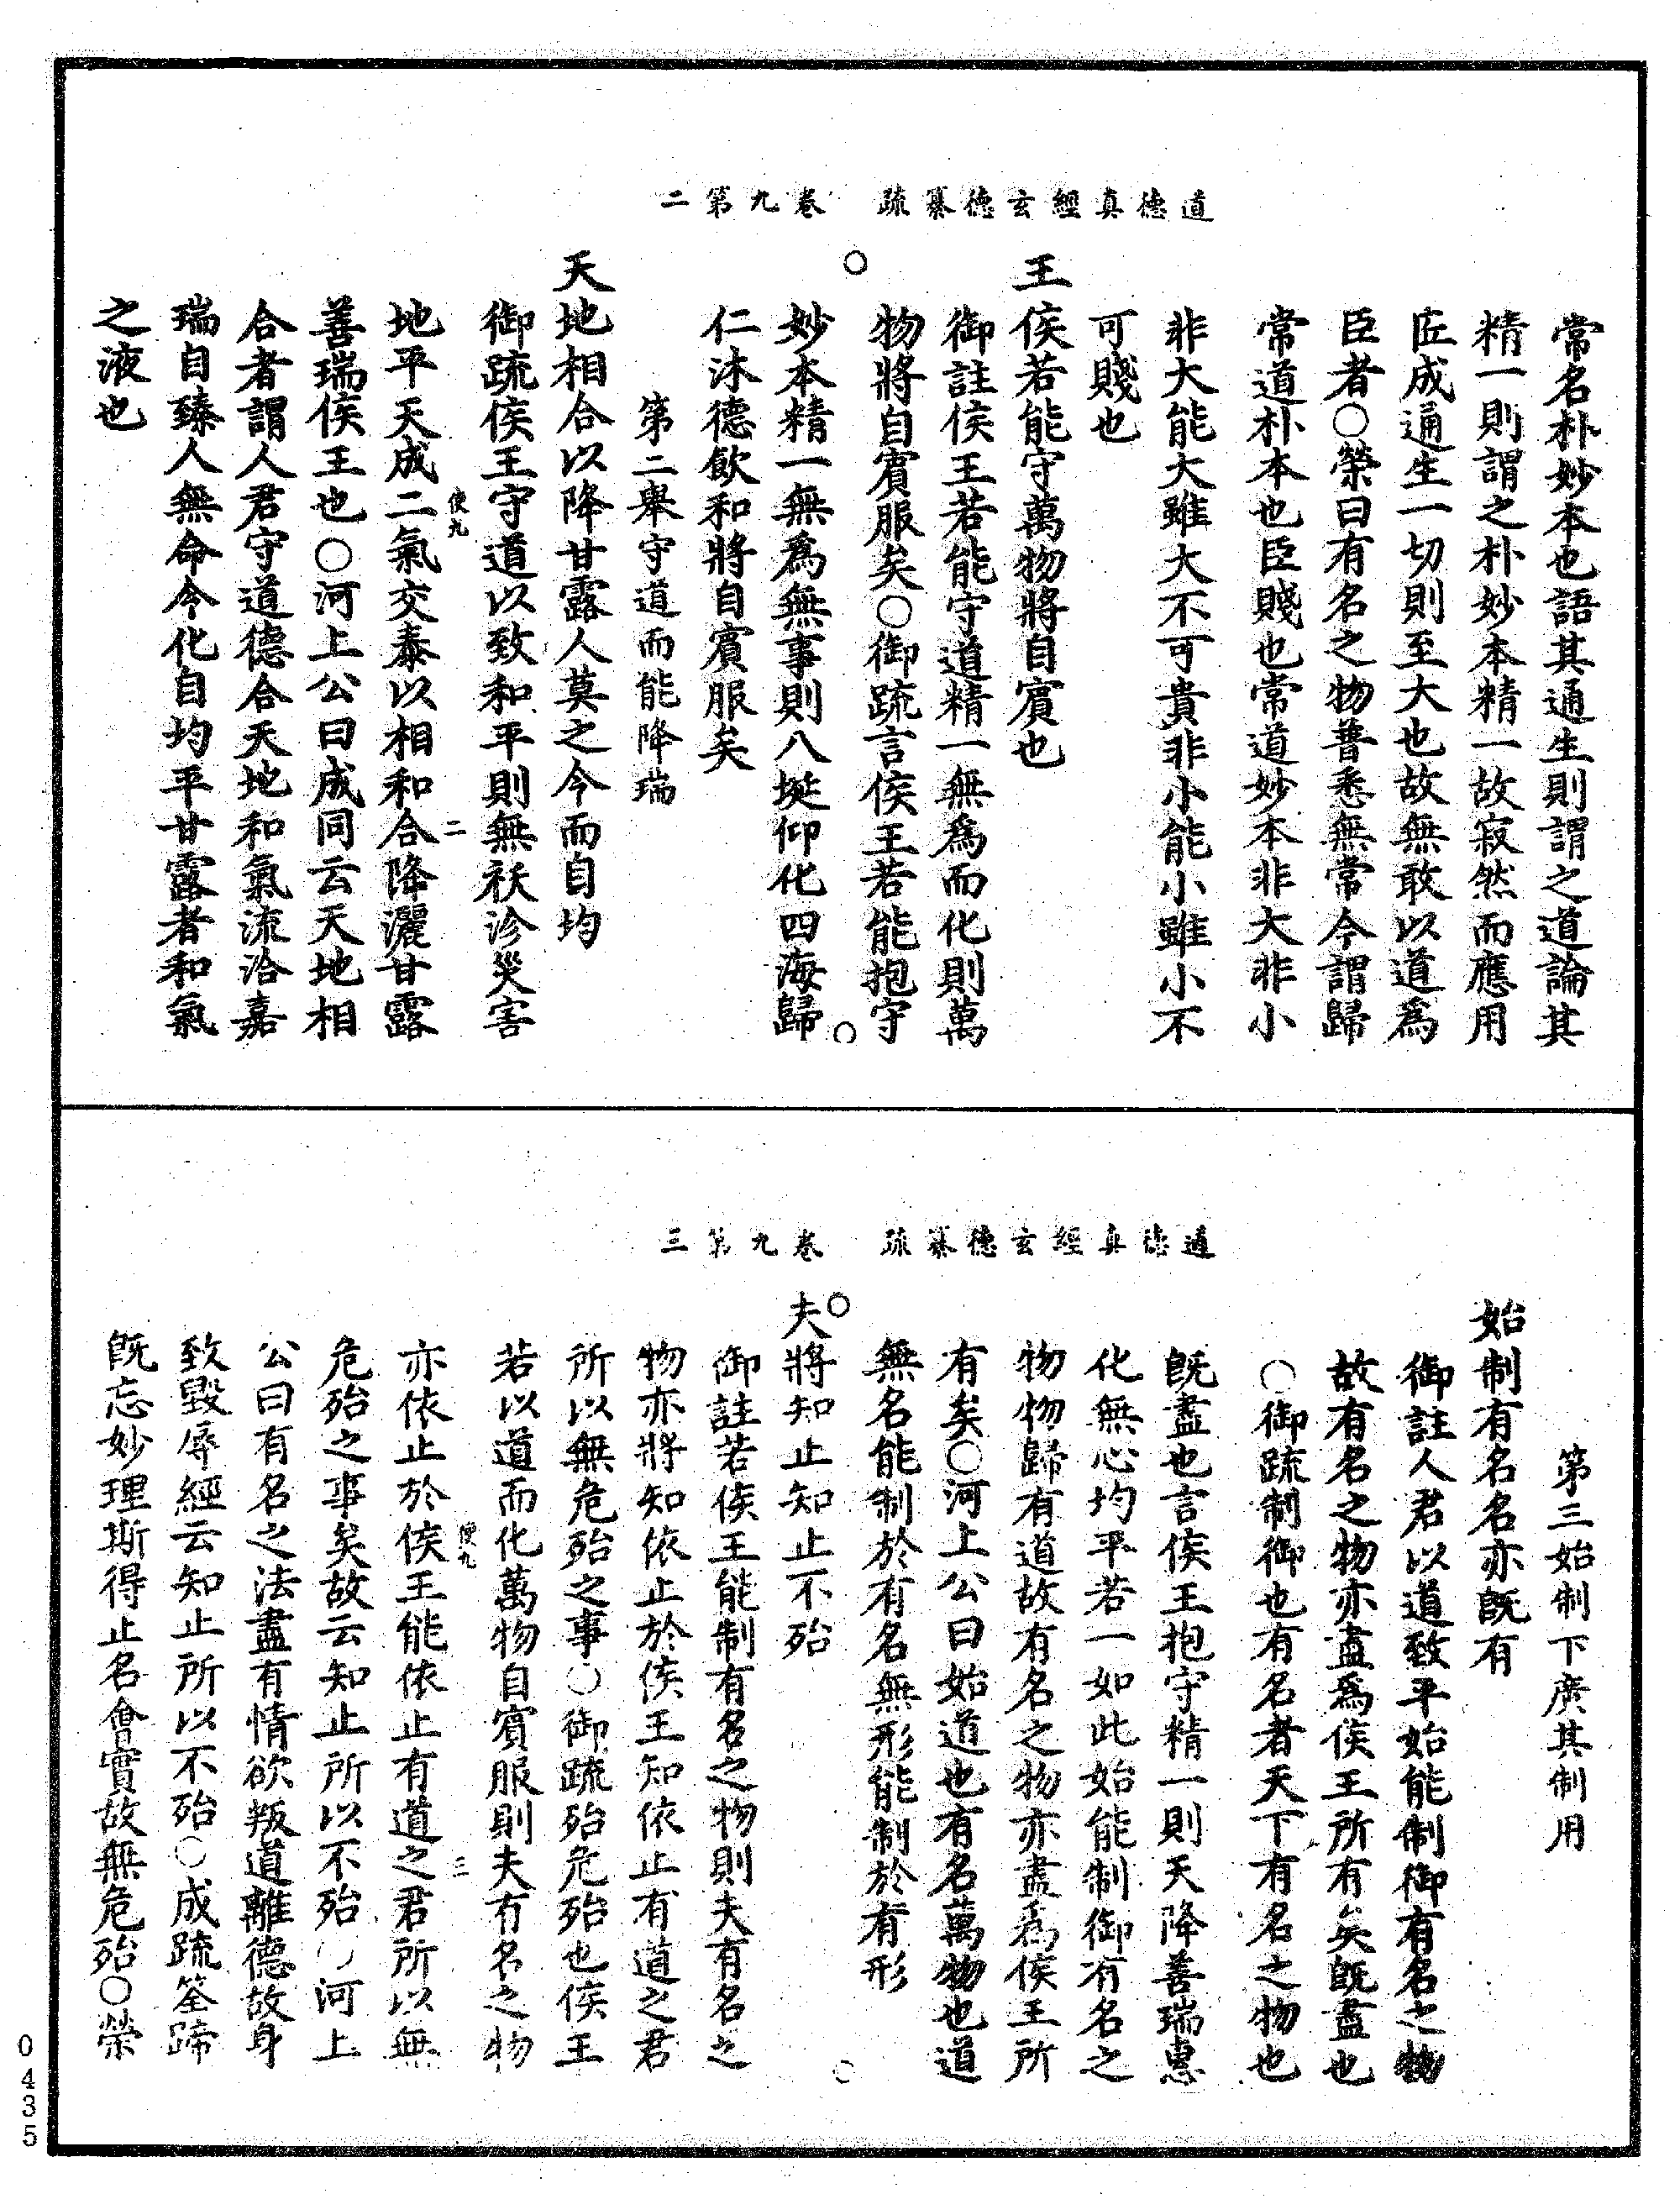 道德真經玄德纂疏　卷九第二
常名朴妙本也語其通生則謂之道論其
精一則謂之朴妙本精一故寂然而應用
匠成通生一切則至大也故無敢以道爲
臣者○榮曰有名之物普悉無常今謂歸
常道朴本也臣賤也常道妙本非大非小
非大能大雖大不可貴非小能小雖小不
可賤也
王侯若能守萬物將自賓也
御註侯王若能守道精一無爲而化則萬
物將自賓服矣○御疏言侯王若能抱守
妙本精一無爲無事則八埏仰化四海歸
仁沐德飲和將自賓服矣
第二舉守道而能降瑞
天地相合以降甘露人莫之令而自均
御疏侯王守道以致和平則無祅沴災害
地平天成二氣交泰以相和合降灑甘露
使九　二
善瑞侯王也○河上公曰成同云天地相
合者謂人君守道德合天地和氣流洽嘉
瑞自臻人無命令化自均平甘露者和氣
之液也
道德真經玄德纂疏　卷九第三
第三始制下廣其制用
始制有名名亦旣有
御註人君以道致平始能制御有名之物
故有名之物亦盡爲侯王所有矣旣盡也
○御疏制御也有名者天下有名之物也
旣盡也言侯王抱守精一則天降善瑞惠
化無心均平若一如此始能制御有名之
物物歸有道故有名之物亦盡爲侯王所
有矣○河上公曰始道也有名萬物也道
無名能制於有名無形能制於有形
夫將知止知止不殆
御註若侯王能制有名之物則夫有名之
物亦將知依止於侯王知依止有道之君
所以無危殆之事○御疏殆危殆也侯王
若以道而化萬物自賓服則夫有名之物
亦依止於侯王能依止有道之君所以無
使九　三
危殆之事矣故云知止所以不殆○河上
公曰有名之法盡有情欲叛道離德故身
致毀辱經云知止所以不殆○成疏筌蹄
旣忘妙理斯得止名會實故無危殆○榮
0435